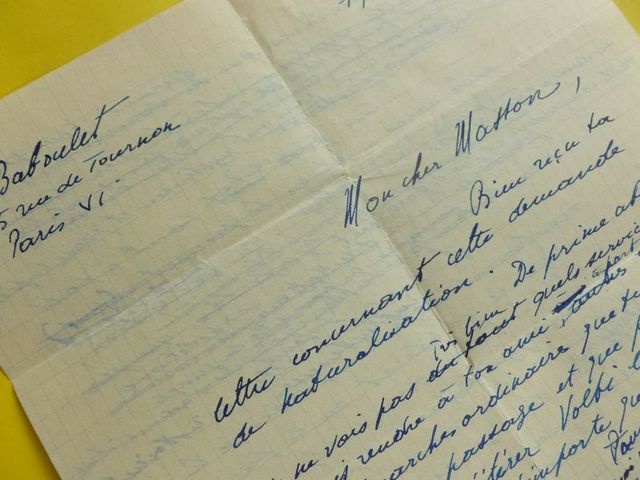 Baboulet
5 rue de Tournon
Paris VI.
Mon cher Masson,
Bien reçu ta
lettre concernant cette demande
de naturalisation. De prime ab
Très bien
à part
ne vois pas du tout quels servic
rendre à ton ami
marches ordinaires que tu
passage et que
térer Volbi l
importe que